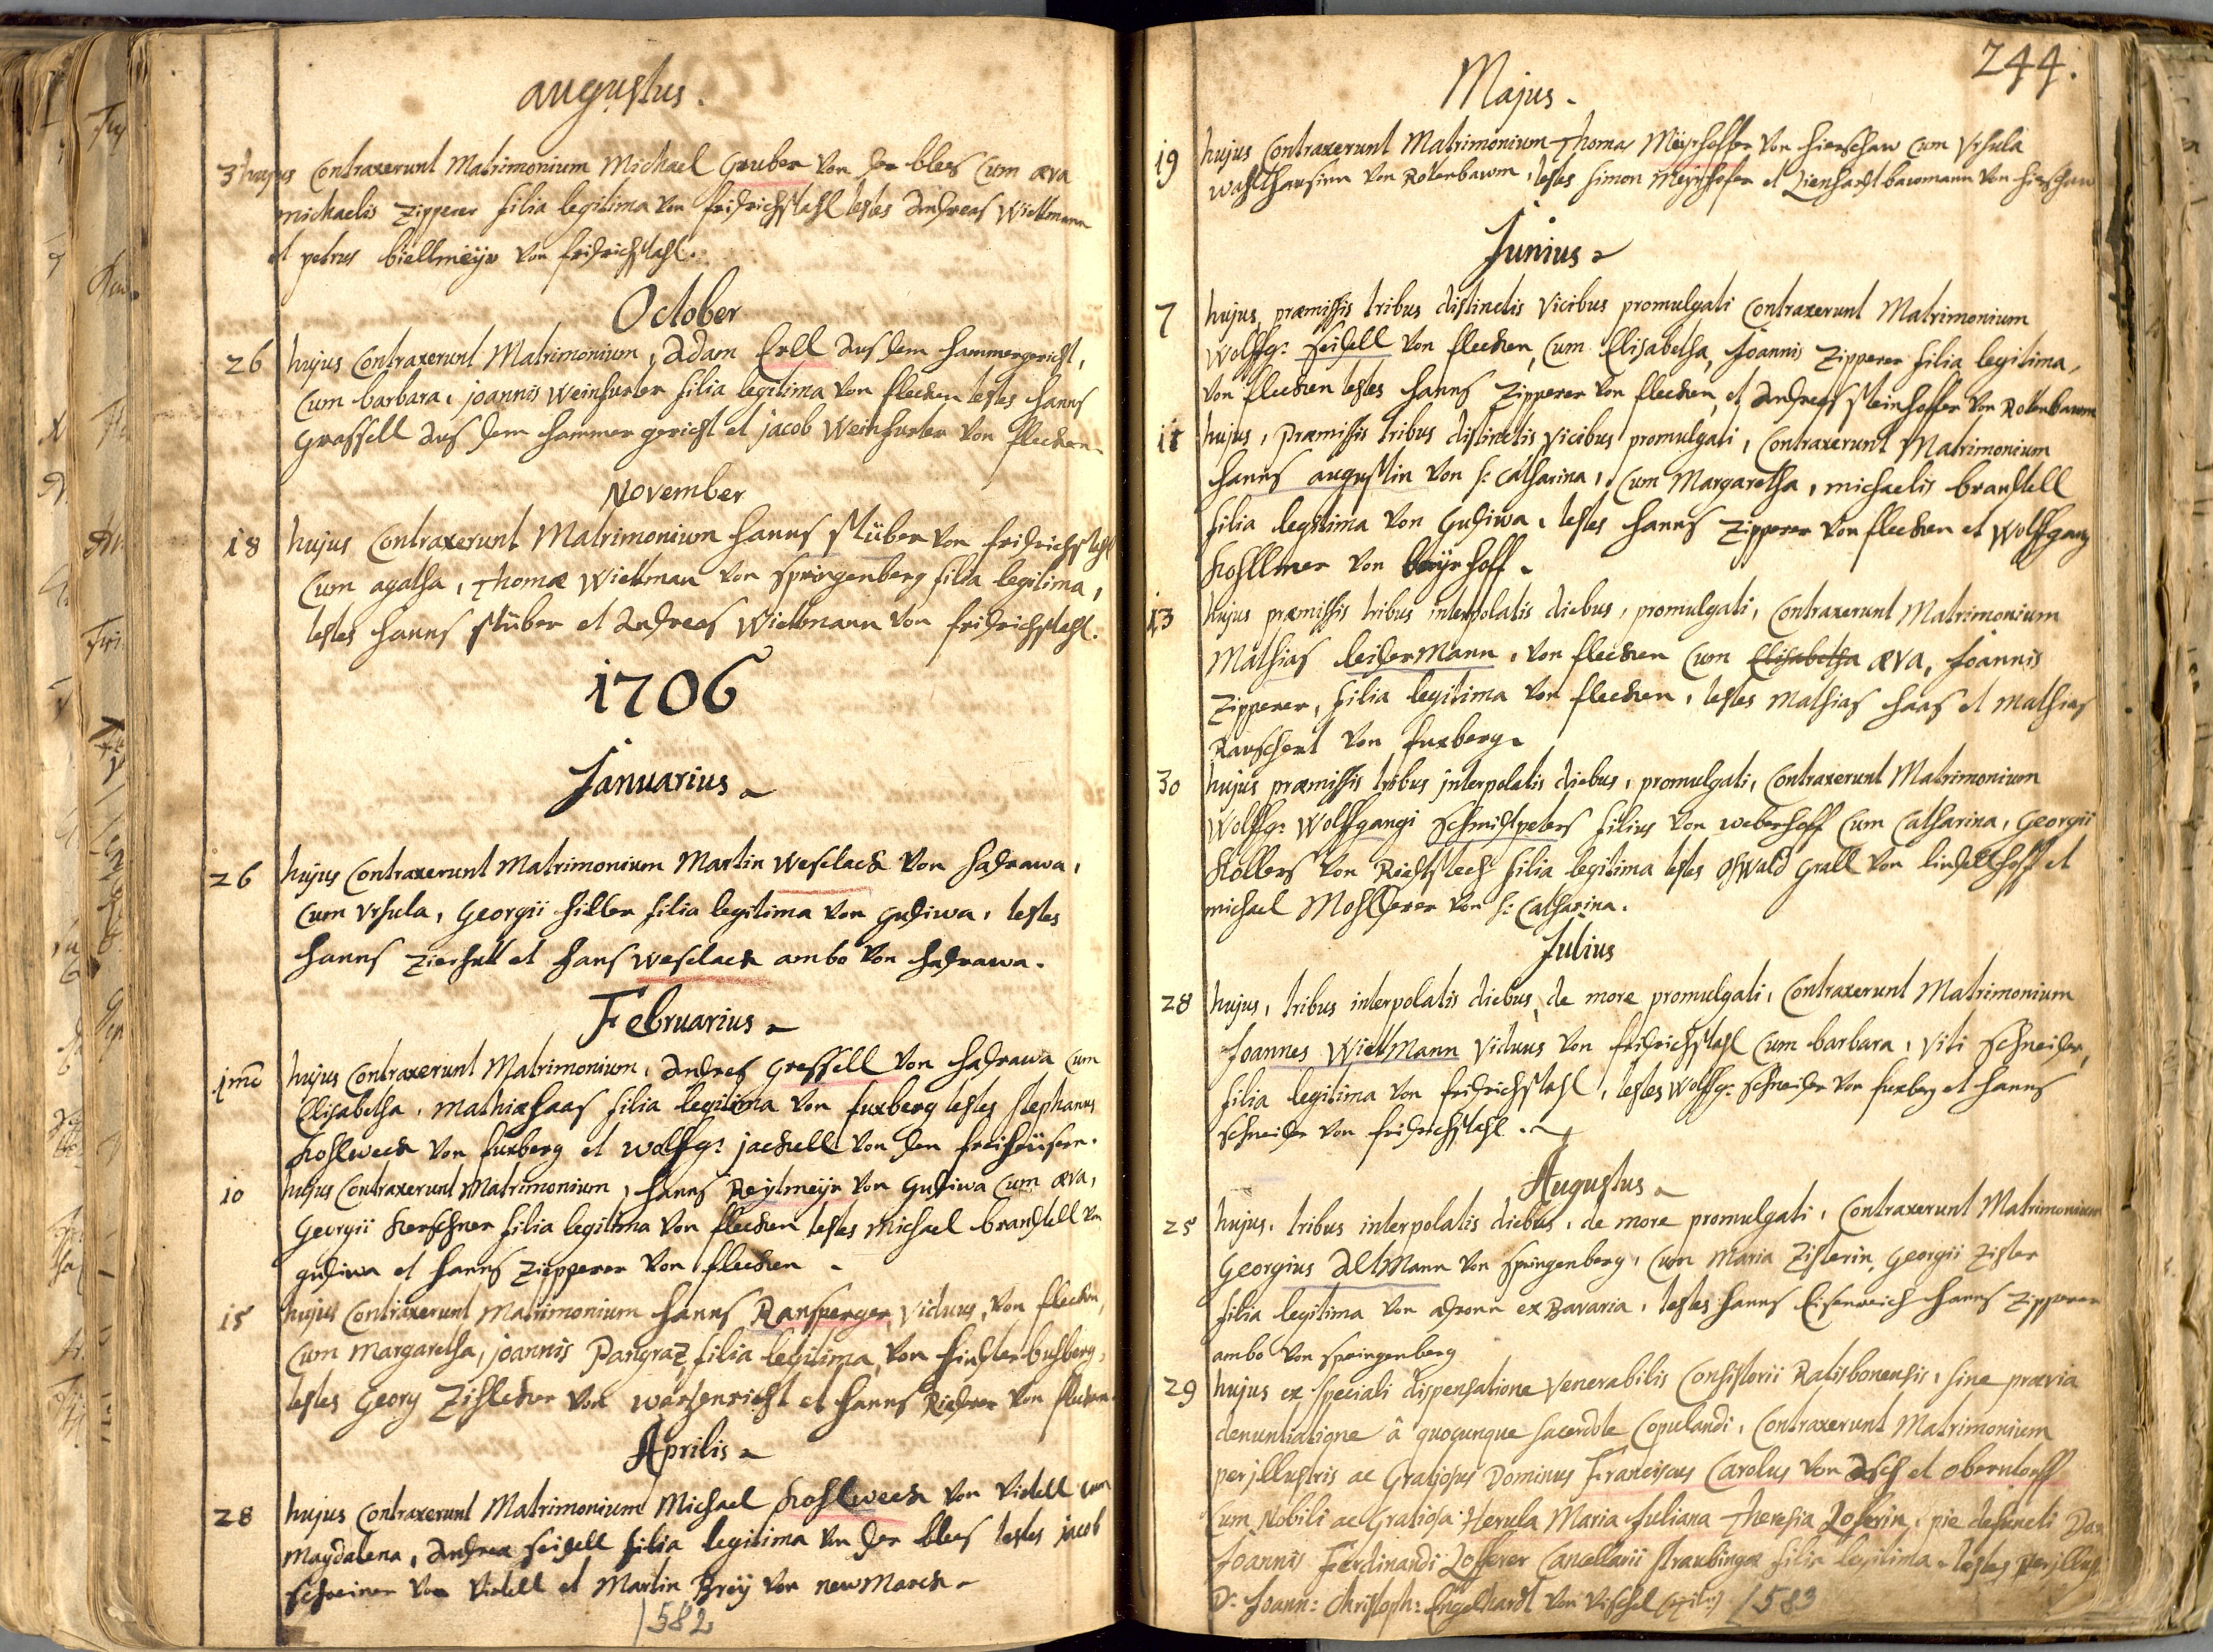 augustus.
3 hujus Contraxerunt Matrimonium Michael Gruber von der blees Cum æva
michaelis Zipperer filia legitima von fridrichstahl testes Andreas Wiettmann
et petrus biellmeÿr von fridrichstahl.
October
26 hujus Contraxerunt Matrimonium, Adam Erll aus dem hammergericht,
Cum barbara, joannis Weinfurter filia legitima von flecken testes hanns
Grassell aus dem hammer gericht et jacob Weinfurter von flecken.
November
18 hujus Contraxerunt Matrimonium hanns stüber von fridrichstahl
Cum agatha, Thomæ Wiettman von springenberg filia legitima,
testes hanns stüber et Andreas Wiettmann von fridrichstahl.
1706
Januarius
26 hujus Contraxerunt Matrimonium Martin Wesclack von hadrawa,
Cum Vrsula, Georgii hiller filia legitima von Gudiwa, testes
hanns Zierhutt et hans Wesclack ambo von hadrawa.
Februarius
1mē hujus Contraxerunt Matrimonium, Andres Gressell von hadrawa Cum
Elisabetha, Mathiæ haas filia legitima von fuxberg testes stephanus
Kohlweck von fuxberg et Wolffg: jackell von den freiheüsern.
10 hujus Contraxerunt Matrimonium, hanns Reÿtmeÿr von Gudiwa Cum æva,
Georgii Kerschner filia legitima von flecken testes Michael brandtell von
gudiwa et hanns Ziepperer von flecken
15 hujus Contraxerunt Matrimonium hanns Ransperger, Viduus, von flecken,
Cum Margaretha, joannis Pangraz filia legitima, von hindterbuchberg,
testes Georg Zihlecker von warzenricht et hanns Riederer von flecken
Aprilis
28 hujus Contraxerunt Matrimonium Michael Kohlweck von Viertell cum
Magdalena, Andreæ seidell filia legitima von der blees testes jacob
schreiner von Viertell et Martin Breÿ von newmarck
1582
244.
Majus
19 hujus Contraxerunt Matrimonium Thomas Meÿrhoffer von hierschaw Cum Vrsula
wahlthausinn von Rotenbawm, testes simon Meÿrhofer et Lienhardt bawmann von hirschaw
Junius
7 hujus, præmissis tribus distinctis Vicibus promulgati Contraxerunt Matrimonium
Wolffg: seidell von flecken, Cum Elisabetha, Joannis Zipperer filia legitima,
von flecken testes hanns Zipperer von flecken, et Andreas steinhoffer von Rotenbawm
11 hujus, Præmissis tribus distinctis Vicibus promulgati, Contraxerunt Matrimonium
hanns augustin von s: Catharina, Cum Margaretha, michaelis brandtell
filia legitima von Gudiwa, testes hanns Zipperer von flecken et Wolffgang
Kohllmer von beÿrhoff
13 hujus præmissis tribus interpolatis diebus, promulgati, Contraxerunt Matrimonium
Mathias leidermann, von flecken Cum Elisabetha æva, Joannis
Zipperer, filia legitima von flecken, testes Mathias haas et Mathias
Rauschert von fuxberg
30 hujus præmissis tribus interpolatis diebus, promulgati, Contraxerunt Matrimonium
Wolffg: Wolffgangi schmidtpeters filius von weberhoff Cum Catharina, Georgii
Kollers von filia legitima testes oswald Grall von lindtlhoff et
michael Mohllerer von s: Catharina.
Julius
28 hujus, tribus interpolatis diebus, de more promulgati, Contraxerunt Matrimonium
Joannes Wiettmann Viduus von fridrichstahl Cum barbara, Viti schneider,
filia legitima von fridrichstahl, testes Wolffg: schneider von fuxberg et hanns
schneider von fridrichstahl.
Augustus
25 hujus, tribus interpolatis diebus, de more promulgati, Contraxerunt Matrimonium
Georgius Altmann von springenberg, Cum Maria Zisterin, Georgii Zister
filia legitima von ex Bavaria, testes hanns Eisenreich hanns Zipperer
ambo von springenberg
29 hujus ex speciali dispensatione Venerabilis Consistorii Ratisbonensis, sine prævia
denuntiatione â quocunque sacerdote Copulandi, Contraxerunt Matrimonium
perjllustris ac Gratiosus Dominus Franciscus Carolus von Asch et oberndorff
Cum Nobili ac Gratiosa Herula Maria Juliana Theresia Loserin, pie defuncti
Joannis Ferdinandi Losser Cancellarii straubingæ filia legitima, testes perjllus
D: Joann: Christoph: Engelhardt von 1583